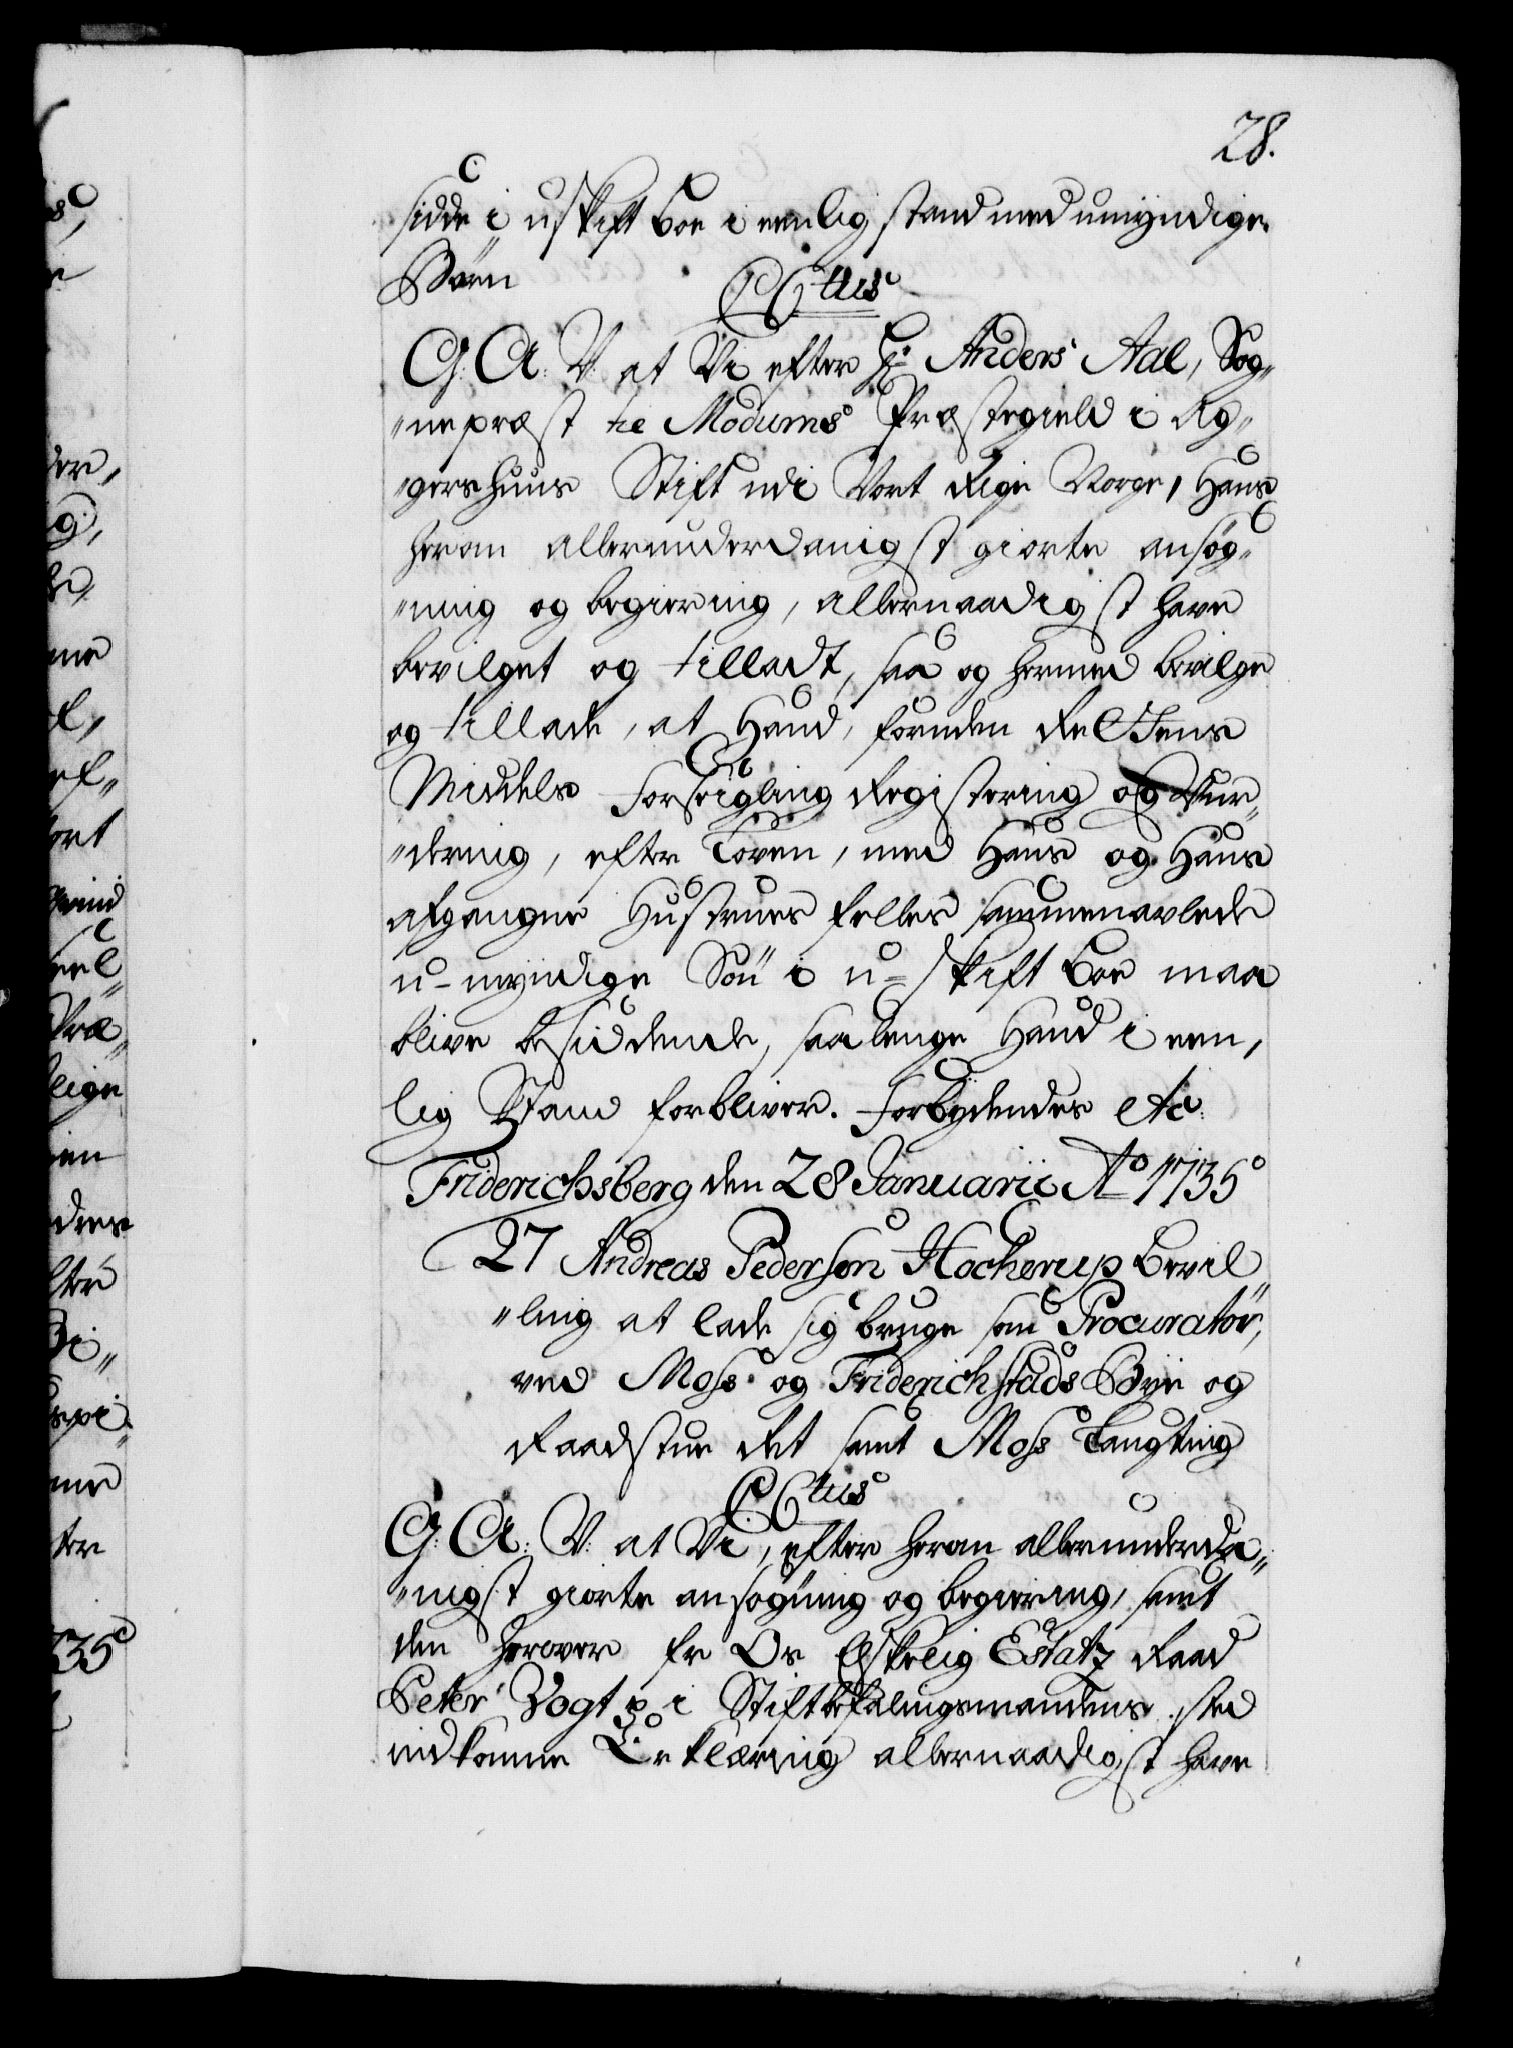 28.
sidde i uskift Boe i eenlig stand med umyndige
Børn
C 6tus
G: A: V: at Vi efter Hr Anders Aal, Sog-
nepræst til Modums Præstegield i Ag-
gershuus Stift udi Vort Rige Norge, Hans
herom allerunderdanigst giorte ansøg-
ning og begiering, allernaadigst have
bevilget og tilladt, saa og hermed bevilge
og tillade, at Hand, foruden Rettens
Middels Forseigling Registering og Vur-
dering, efter Loven, med Hans og Hans
afgangne Hustrues felles sammenavlede
u-myndige Søn i u-skift Boe maa
blive besiddende, saalenge Hand i een-
lig Stand forbliver. Forbydendes etc:
Friderichsberg den 28 Januarii Ao 1735
27 Andreas Pedersen Hockerup Bevil-
ling at lade sig bruge som Procurator,
ved Moss og Friderichstads Bye og
Raadstue Ret samt Moss Laugting
C 6tus
G: A: V: at Vi, efter herom allerunderda-
nigst giorte ansøgning og begiering, samt
den herover fra Os Elskelig Etatz Raad
Peter Vogt i Stiftbefalingsmandens sted
indkomne Erklæring allernaadigst have